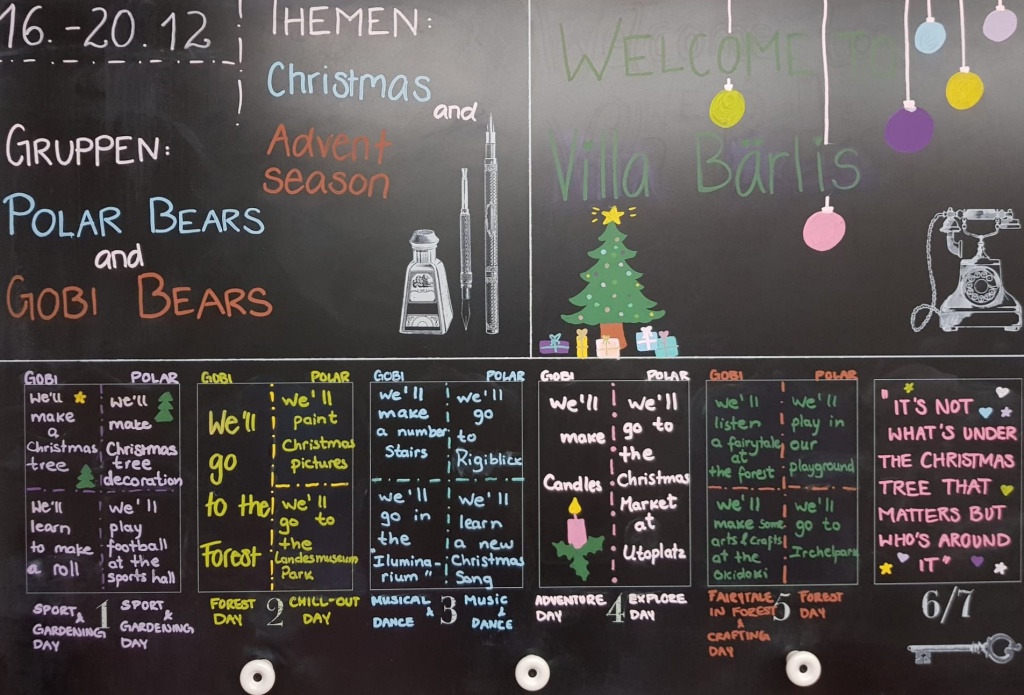 16.-20.12
THEMEN:
Christmas
and
Advent
season
GRUPPEN:
POLAR BEARS
and
GOBI BEARS
WELCOME TO
Villa Bärlis
GOBI POLAR
We'll
make
a
Christmas
tree
We'll
make
Christmas
tree
decoration
We'll
learn
to make
a roll
we'll
play
football
at the
sports hall
SPORT
&
GARDENING
DAY
1
SPORT
&
GARDENING
DAY
GOBI POLAR
We'll
go
to the
Forest
we'll
paint
Christmas
pictures
we'll
go to
the
Landesmuseum
Park
FOREST
DAY
2
CHILL-OUT
DAY
GOBI POLAR
we'll
make
a number
Stairs
we'll
go
to
Rigiblick
we'll
go in
the
"Ilumina-
rium"
we'll
learn
a new
Christmas
Song
MUSICAL
&
DANCE
3
MUSIC
&
DANCE
GOBI POLAR
we'll
make
Candles
we'll
go to
the
Christmas
Market
at
Utoplatz
ADVENTURE
DAY
4
EXPLORE
DAY
GOBI POLAR
we'll
listen
a fairytale
at
the forest
we'll
play in
our
playground
we'll
make some
arts & crafts
at the
Okidoki
we'll
go to
Irchelpark
FAIRYTALE
IN FOREST
&
CRAFTING
DAY
5
FOREST
DAY
"IT'S NOT
WHAT'S UNDER
THE CHRISTMAS
TREE THAT
MATTERS BUT
WHO'S AROUND
IT"
6/7